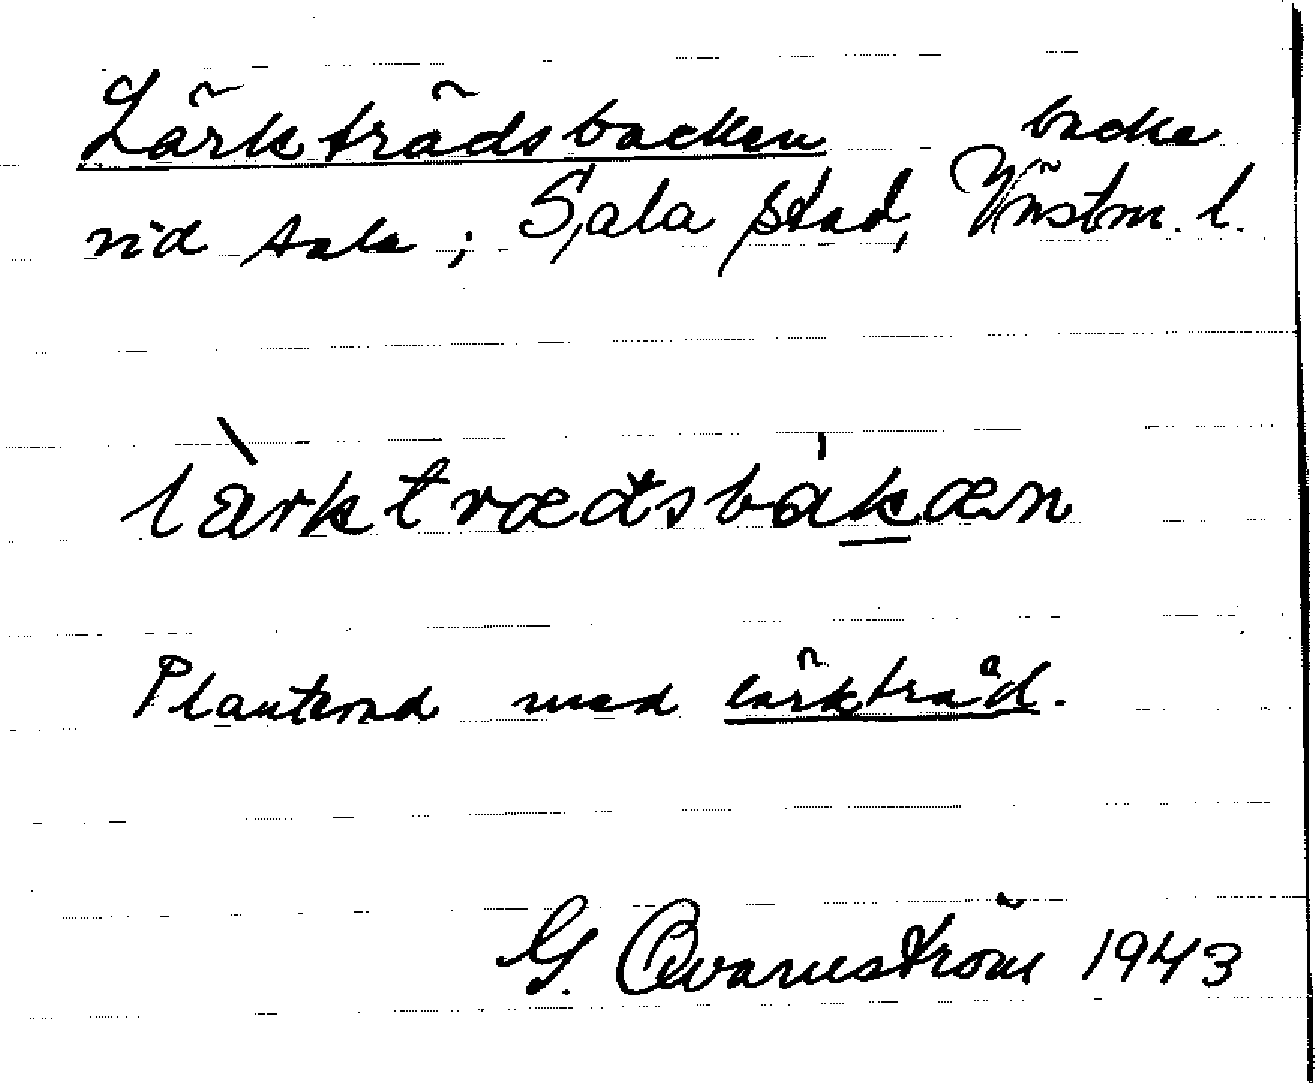 Lärkträdsbacken backe
vid Sala; Sala stad, Västm. l.
làrktrædsbákæn
Planterad med lärkträd.
G. Qvarnström 1943